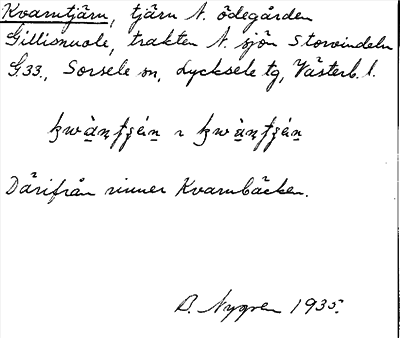 Kvarntjärn, tjärn N. ödegården
Gillisnuole, trakten N. sjön Storvindeln
G33., Sorsele sn, Lycksele tg, Västerb. l.
Därifrån rinner Kvarnbäcken.
B. Nygren 1935.